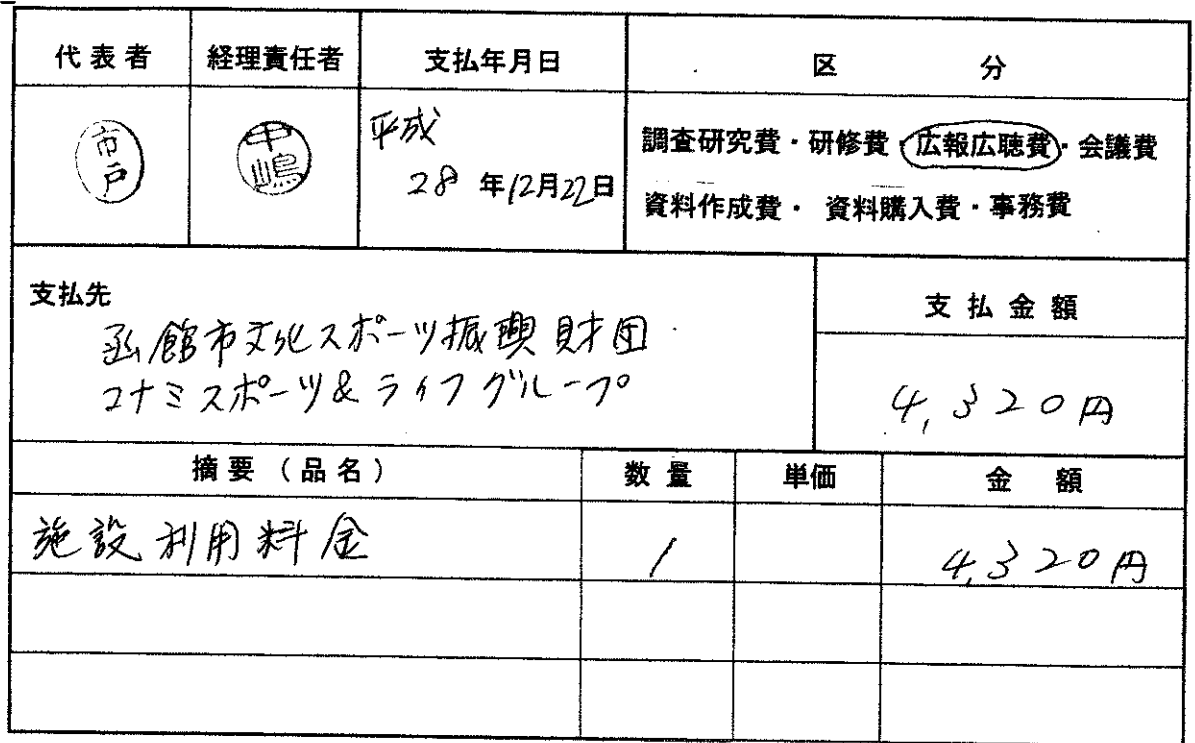 代表者 経理責任者 支払年月日 区分
市戸 中嶋 平成
28年12月22日
調査研究費・研修費・広報広聴費・会議費
資料作成費・資料購入費・事務費
支払先
函館市文化スポーツ振興財団
コナミスポーツ&ライフグループ
支払金額
4,320円
摘要（品名） 数量 単価 金額
施設利用料金 1 4,320円